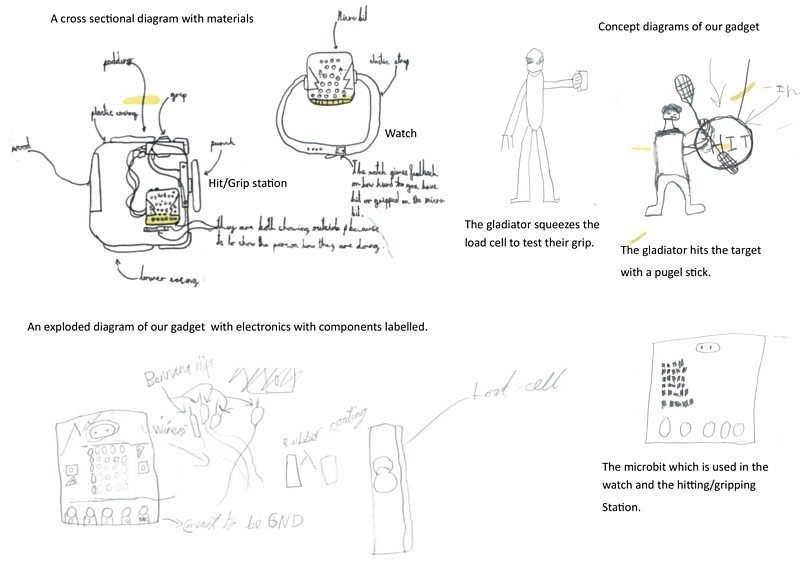 A cross sectional diagram with materials
Micro:bit
padding
elastic strap
grip
plastic casing
punch
wood
Watch
Hit/Grip station
The watch gives feedback
on how hard you have
hit or gripped on the micro
bit.
they are both showing outside because
is to show the person how they are doing.
lower casing
Concept diagrams of our gadget
HIT
The gladiator squeezes the
load cell to test their grip.
The gladiator hits the target
with a pugel stick.
An exploded diagram of our gadget with electronics with components labelled.
Bannana clips
wires
Rubber coating
Load cell
meant to be GND
The microbit which is used in the
watch and the hitting/gripping
Station.